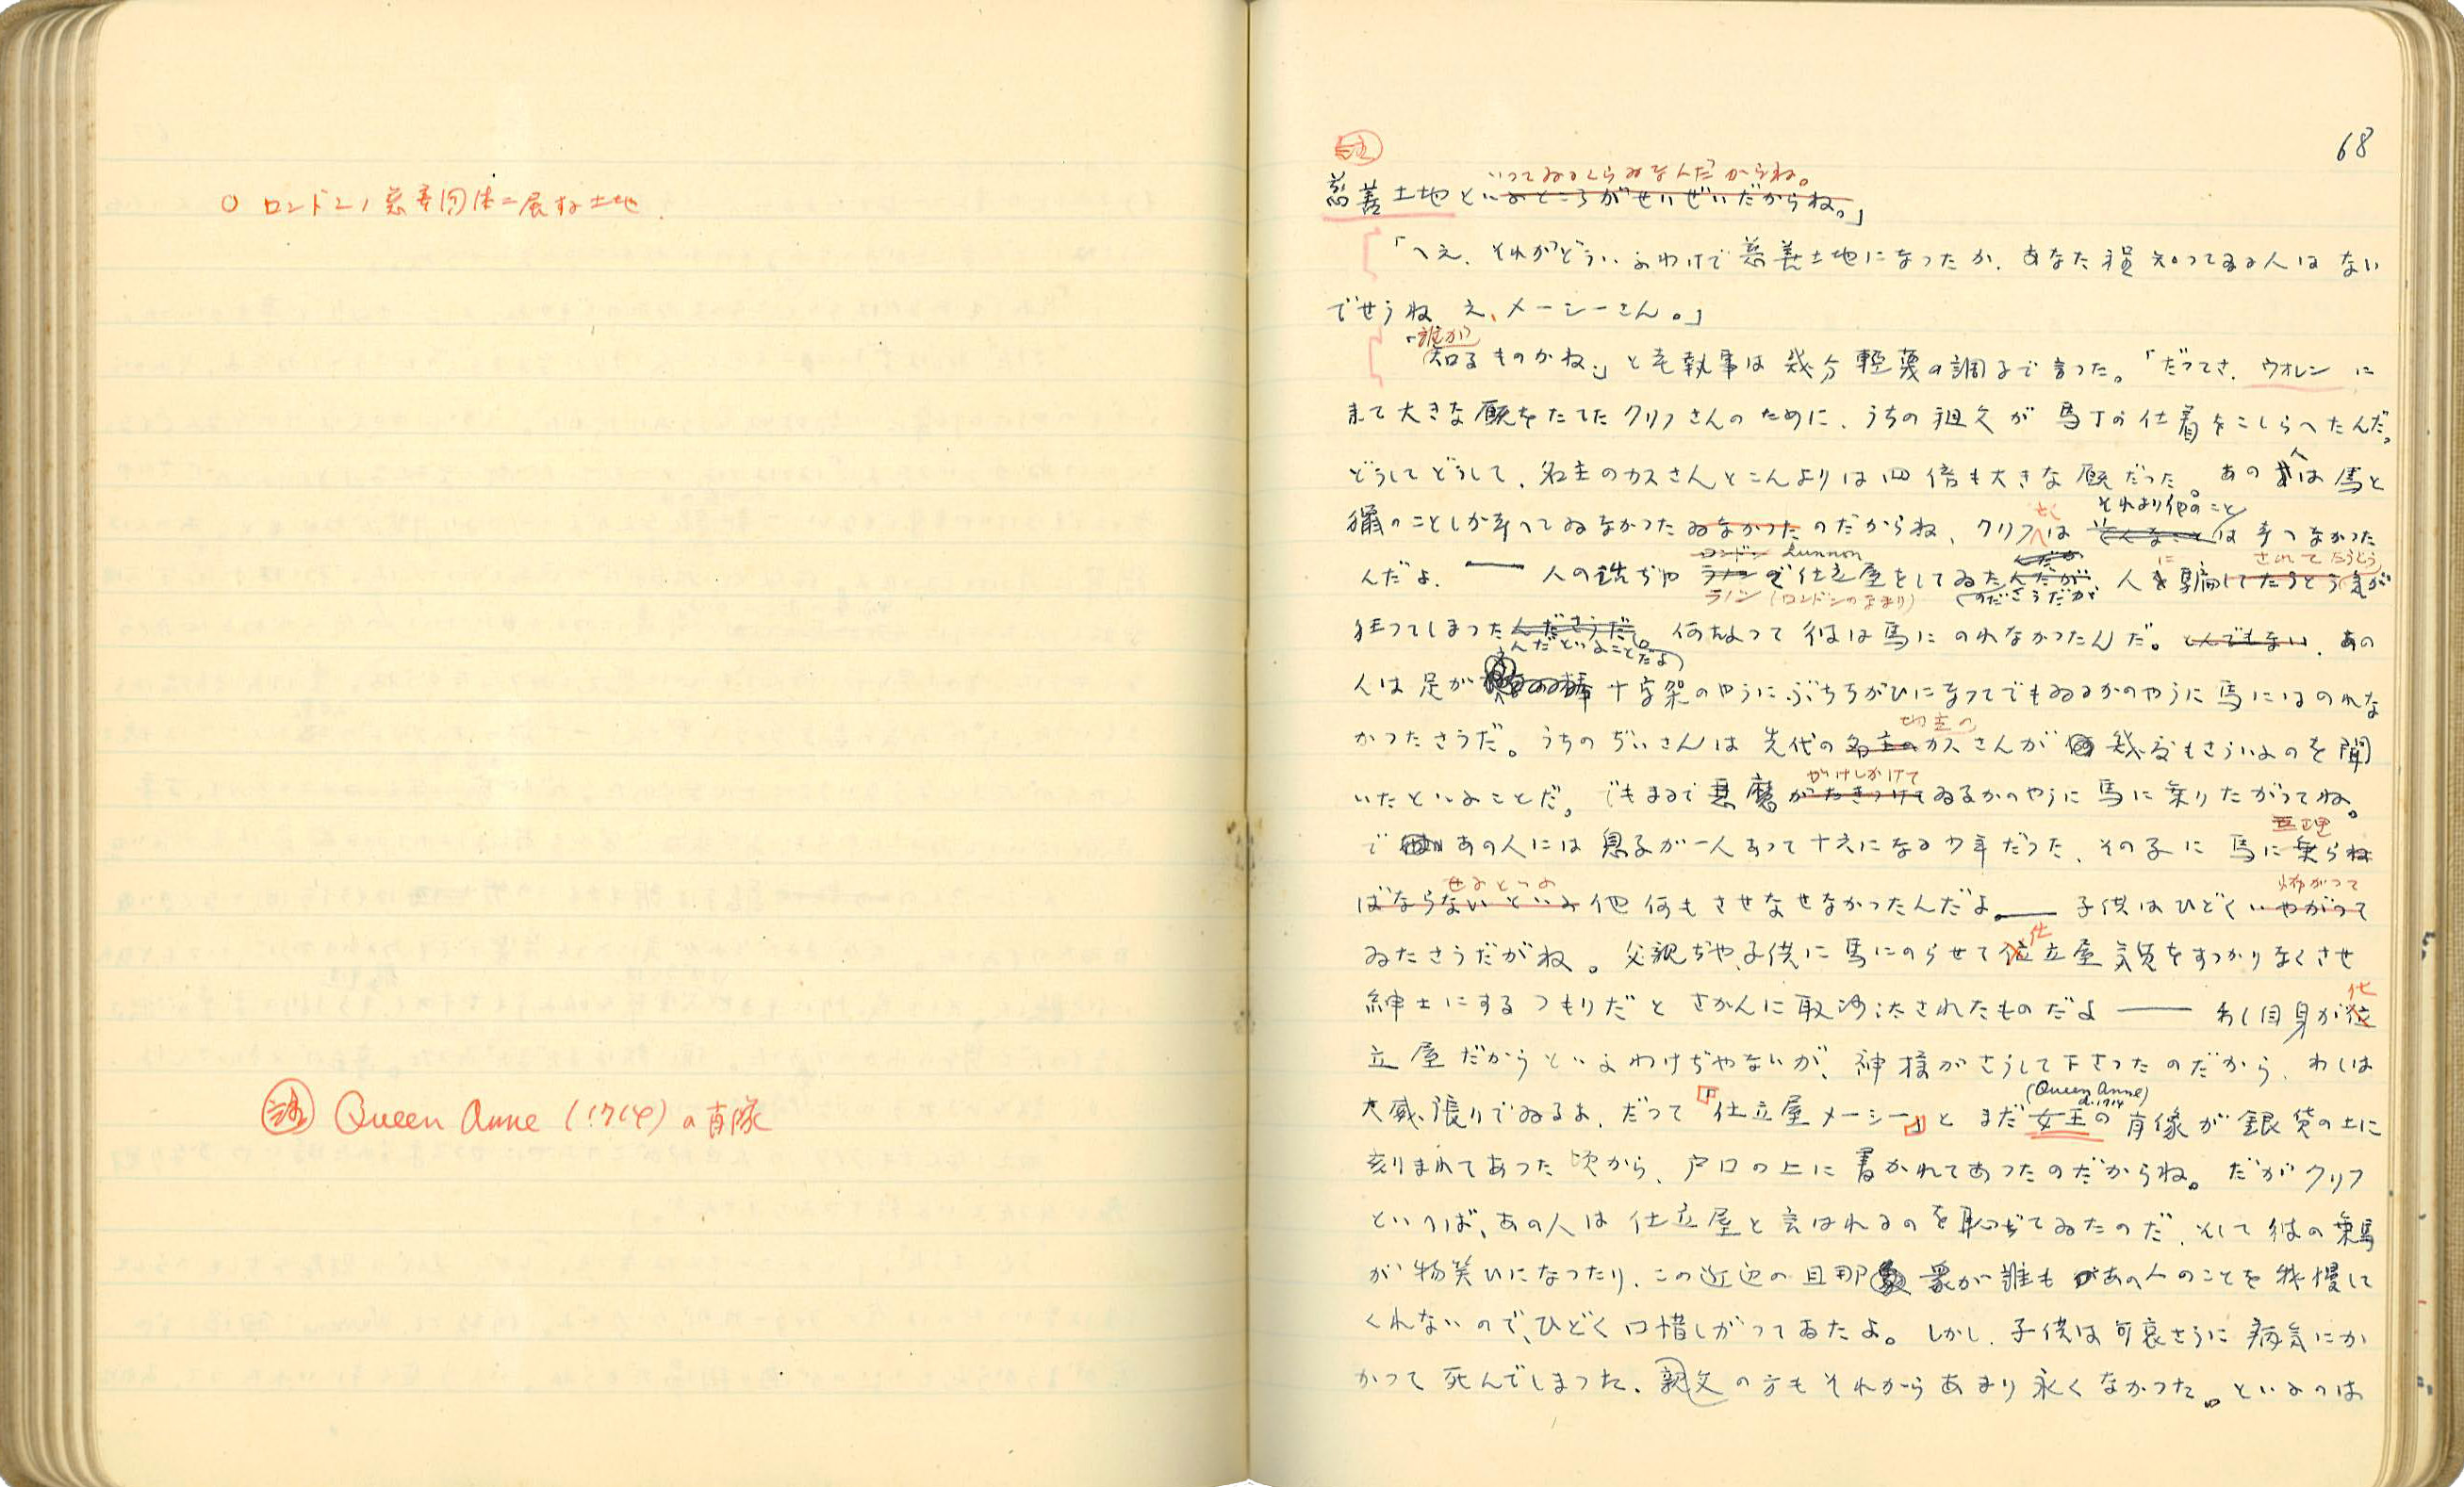 ○ ロンドンノ慈善団体ニ属する土地.
註 Queen Anne (1714) の肖像
68
註
いつてゐるくらゐなんだからね。
慈善土地といふところがせいぜいだからね。」
「へえ、それがどういふわけで慈善土地になつたか、あなた程知つてゐる人はない
でせうね え、メーシーさん。」
「誰が
知るものかね」と老執事は幾分軽蔑の調子で言つた。「だつてさ、ウオレンに
来て大きな厩をたてたクリフさんのために、うちの祖父が馬丁の仕着をこしらへたんだ。
どうしてどうして、名主のカスさんとこんよりは四倍も大きな厩だつた。あの人は馬と
それより他のこと
猟のことしか考へてゐなかつたゐなかつたのだからね、クリフは そんなことは考へなかつた
ロンドン Lunnon
に されてたうとう
んだよ. ― 人の話ぢやラノンで仕立屋をしてゐたんだが、人を騙してたうとう気が
ラノン (ロンドンのなまり) のださうだが
狂つてしまつたんださうだ。何たつて彼は馬にのれなかつたんだ。とんでもない、あの
んだといふことだよ
人は足が 十字架のやうにぶちちがひになつてでもゐるかのやうに馬にはのれな
地主の
かつたさうだ。うちのぢいさんは先代の名主のカスさんが幾度もさういふのを聞
がけしかけて
いたといふことだ。でもまるで悪魔がたきつけてゐるかのやうに馬に乗りたがつてね。
無理
であの人には息子が一人あつて十六になる少年だつた、その子に馬に乗らね
せるといふ 怖がつて
ばならないといふ他何もさせなせなかつたんだよ。― 子供はひどくいやがつて
仕
ゐたさうだがね。父親ぢや、子供に馬にのらせて立屋気質をすつかりなくさせ
紳士にするつもりだとさかんに取沙汰されたものだよ ― わし自身が仕
立屋だからといふわけぢやないが、神様がさうして下さつたのだから、わしは
(Queen Anne)
d.1714
大威張りでゐるよ、だつて「仕立屋メーシー」とまだ女王の肖像が銀貨の上に
刻まれてあつた頃から、戸口の上に書かれてあつたのだからね。だがクリフ
といへば、あの人は仕立屋と言はれるのを恥ぢてゐたのだ、そして彼の乗馬
が物笑ひになつたり、この近辺の旦那衆が誰もがあの人のことを我慢して
くれないので、ひどく口惜しがつてゐたよ。しかし、子供は可哀さうに病気にか
かつて死んでしまつた、親父の方もそれからあまり永くなかつた。といふのは